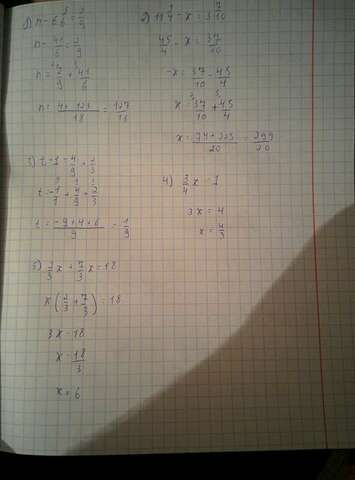 1) n - 6 5/6 = 2/9
n - 41/6 = 2/9
n = 2/9 + 41/6
n = (4 + 123)/18 = 127/18
2) 11 1/4 - x = 3 7/10
45/4 - x = 37/10
-x = 37/10 - 45/4
x = 37/10 + 45/4
x = (74 + 225)/20 = 299/20
3) t - 1 = 4/9 + 2/3
t = -1/1 + 4/9 + 2/3
t = (-9 + 4 + 6)/9 = 1/9
4) 3/4 x = 1
3x = 4
x = 4/3
5) 2/3 x + 7/3 x = 18
x (2/3 + 7/3) = 18
3x = 18
x = 18/3
x = 6